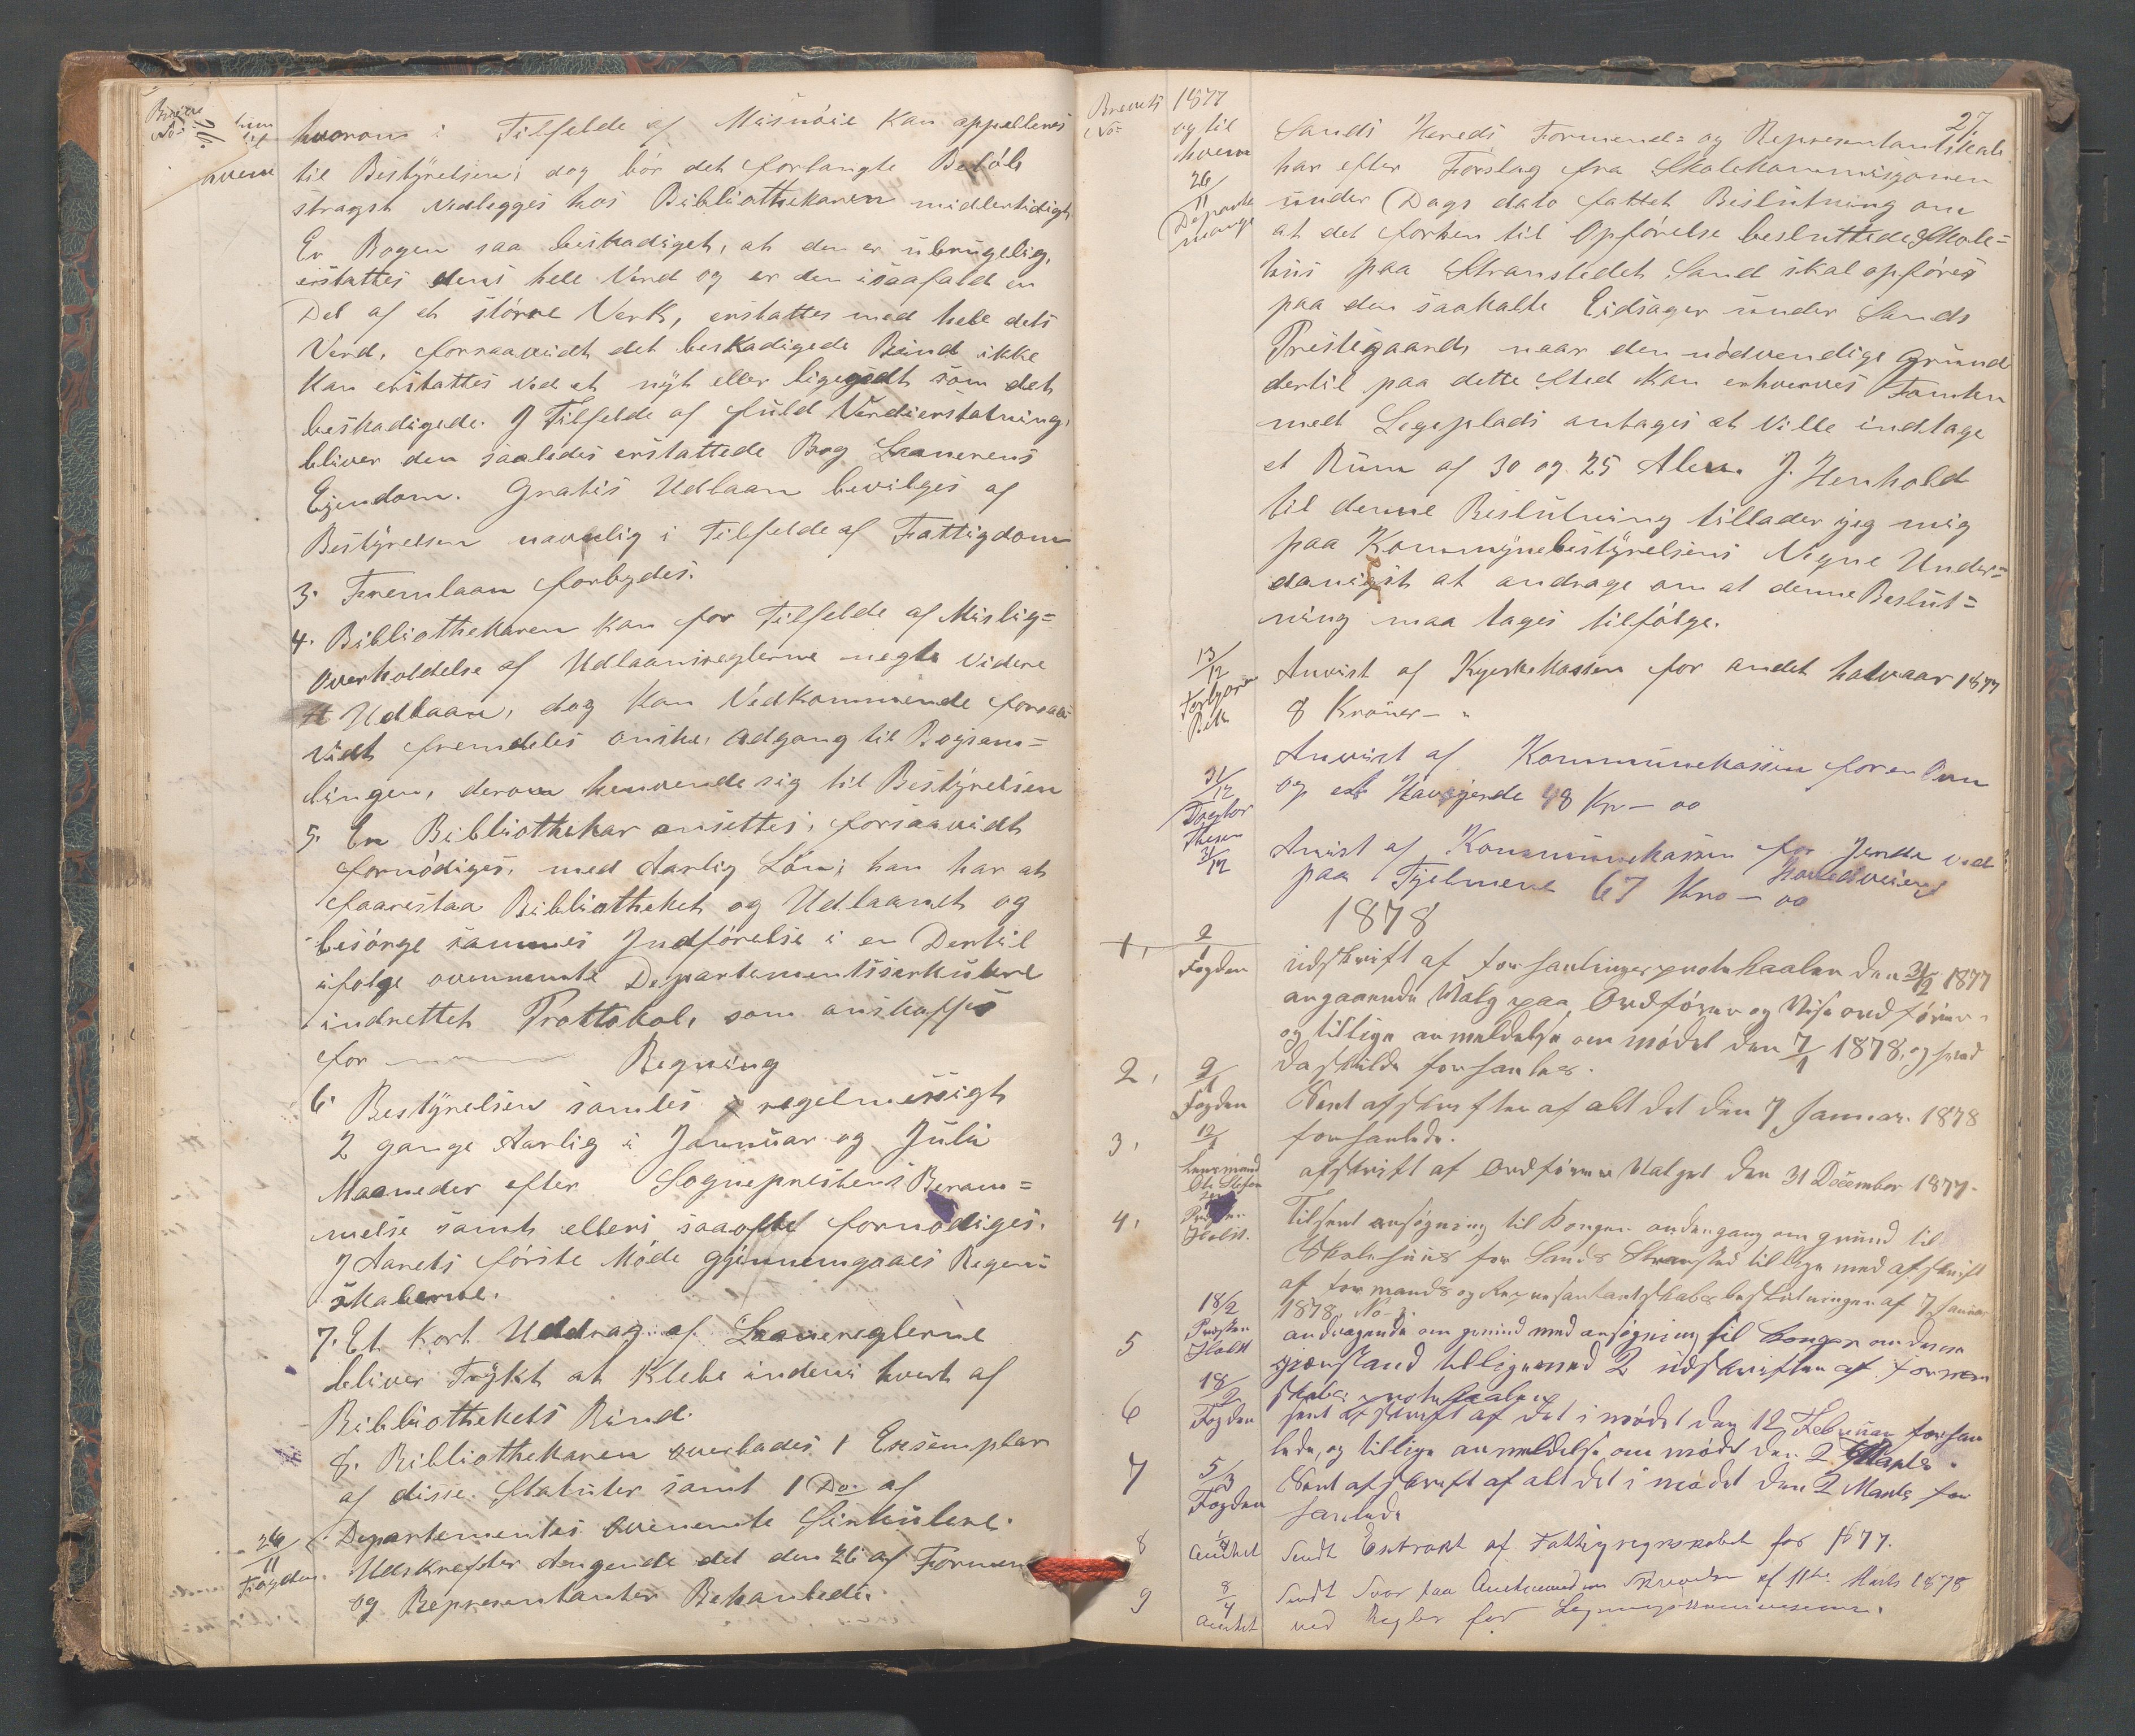 hvorom i Tilfelde af Misnöie Kan appelleres
til Bestÿrelsen; dog bör det forlangte Belöb
stragst Nedlegges hos Bibliothekaren midlertidigt.
Er Bogen saa beskadiget, at den er ubrugelig,
erstattes dens hele Verd og er den isaafald en
Del af et större Verk, erstattes med hele dets
Verd, forsaavidt det beskadigede Bind ikke
Kan erstattes ved et nÿt eller ligegodt som det
beskadigede. I Tilfelde af fuld Verdierstatning,
bliver den saaledes erstattede Bog Laanerens
Ejendom. Gratis Udlaan bevilges af
Bestÿrelsen navnlig i Tilfelde af Fattigdom
3. Fremlaan forbydes.
4. Bibliothekaren kan for Tilfelde af Mislig=
Overholdelse af Udlaansreglerne negte videre
Udlaan, dog kan Vedkommende forsaa
vidt fremdeles önske Adgang til Bogsam=
lingen, derom henvende sig til Bestÿrelsen
5. En Bibliothekar ansettes, forsaavidt
fornödiges, med Aarlig Lön; han har at
forestaa Bibliotheket og Udlaanet og
besörge sammes Indförelse i en Dertil
ifölge ovennemte Departementssirkulere
indrettet Prottokol, som anskaffes
for Regning
6. Bestÿrelsen samles regelmessigt
2 gange Aarlig i Januar og Juli
Maaneder efter Sogneprestens Beram=
melse samt ellers saaofte fornödiges.
I Aarets förste Möde gjennemgaaes Regen=
skaberne.
7. Et kort Uddrag af Laanereglerne
bliver Trÿkt at Klebe indeni hvert af
Bibliothekets Bind.
8. Bibliothekaren overlades 1 Exsemplar
af disse Statuter samt 1 Do. af
Departementes Ovenemte Sirkulere.
26/11 Fogden. Udskrefter Angende det den 26 af Formen
og Representanter Behanlede.
27.
Brevets No
1877 og til hvem
26/11
Sands Hereds Formend= og Representantskab
har efter Forslag fra Skolekommisjonen
under Dags dato fattet Beslutning om
at det forhen til Opförelse besluttede Skole=
hus paa Stranstedet Sand skal opföres
paa den saakalte Eidsager under Sands
Prestegaard, naar den nödvendige Grund
dertil paa dette Sted kan erhverves Tomten
med Legeplads antages at ville indtage
et Rum af 30 og 25 Alen. I Henhold
til denne Beslutning tillader jeg mig
paa Kommunebestÿrelsens Vegne Under=
danigst at andrage om at denne Beslut=
ning maa tages tilfölge.
13/12 Anvist af Kyerkekassen for andet halvaar 1877
8 Kroner
31/12 Anvist af Kommunekassen for en Ovn
og 48 Kr — 00
31/12 Anvist af Kommunekassen for Jende ved
paa Hovedveiene 67 Kro — 00
1878
1, 2/1 Fogden udskrift af forhanlingsprotokaalen den 31/12 1877
angaaende Valg paa Ordförer og Viseordförer
og tillige anmeldelse om mödet den 7/1 1878, og hvad
da skulde forhanles.
2, 9/1 Fogden Sent afskrefter af alt det den 7 Januar 1878
forhanlede.
3, 12/1 Lensmand afskrift af Ordförer Valget den 31 December 1877.
4, Presten Holst. Tilsent ansögning til Kongen andengang om grund til
Skolehuus for Sands Stransted tillige med afskrift
af formands og Representantskabsbeslutningen af 7 Januar
1878, No 3.
5 18/2 Presten Holst andragende om grund med ansögning til Kongen om denne
gjenstand tilligemed 2 udskrifter af formen
skabs protokaalene
6 18/2 Fogden sent afskrift af det i mödet den 12 Februar forhan
lede, og tillige anmeldelse om mödet den 2 Marts.
7 5/3 Fogden Sent afskrift af alt det i mödet den 2 Marts for
hanlede
8 Amtet Sendt Extrakt af Fattigregnskabet for 1877.
9 8/4 Amtet Sendt Svar paa Amtmandens Skrivelse af 11te Marts 1878
ved Regler for Ligningskommisionen.